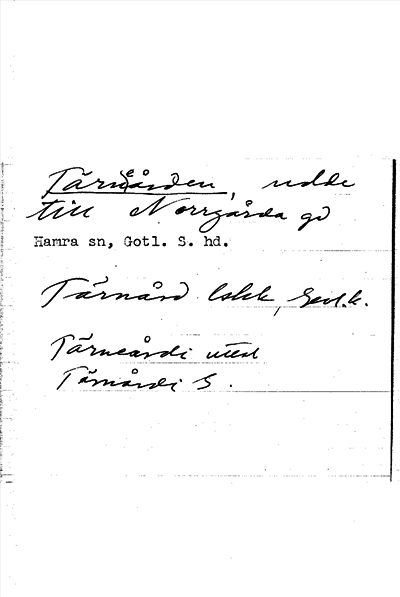 Tärneården, udde
till Norrgårda gd
Hamra sn, Gotl. S. hd.
Tärnård lskk, Gotl.k.
Tärneårdi utal
Tärnårdi S.